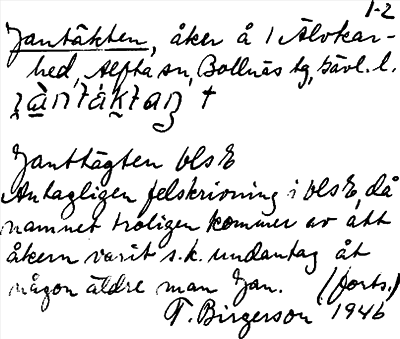 1-2
Jantäkten, åker å 1 Älvkar-
hed, Alfta sn, Bollnäs tg, Gävl. l.
Janttägten blsE
Antagligen felskrivning i blsE, då
namnet troligen kommer av att
åkern varit s.k. undantag åt
någon äldre man Jan. (forts.)
T. Birgerson 1946